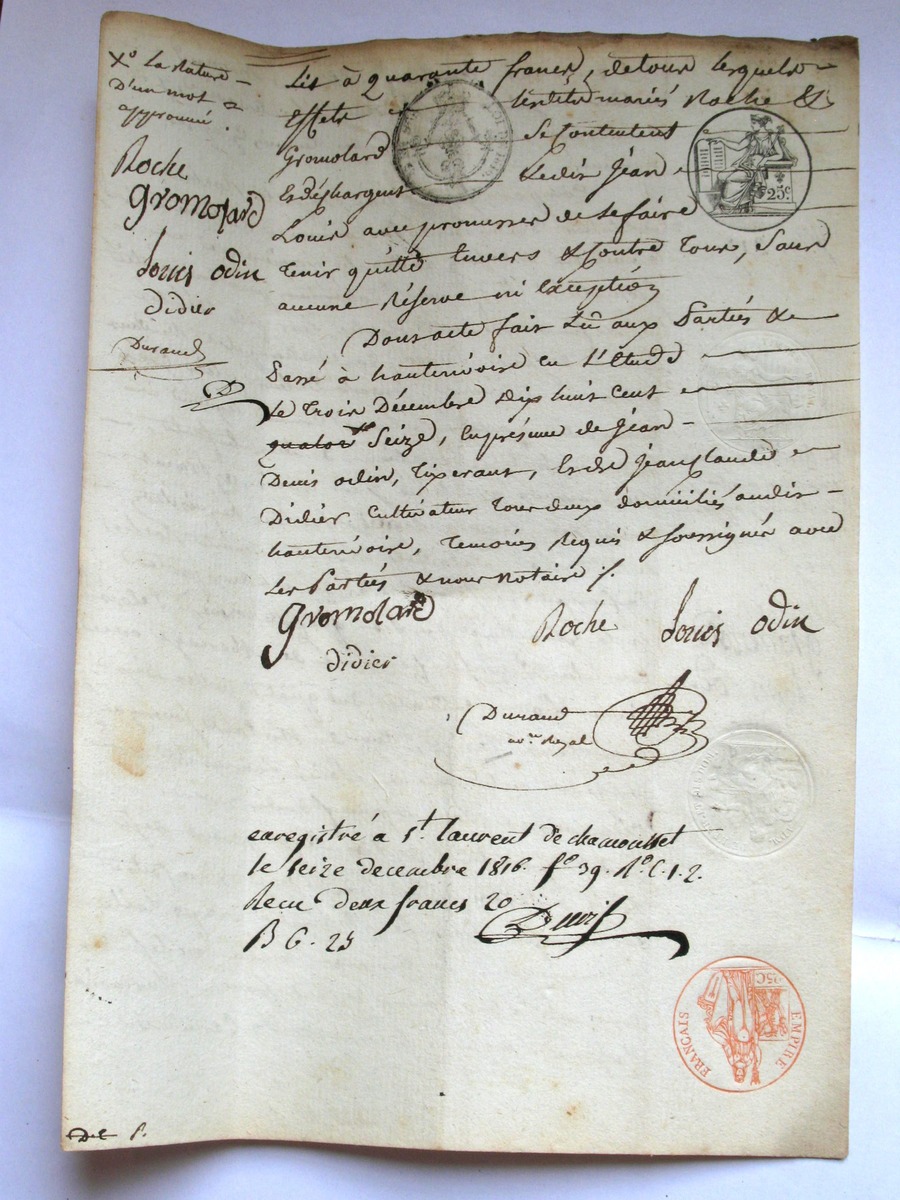 Xº la rature
D'un mot
approuvé.
Roche
Gromolard
Louis odin
didier
Durand
D
Lis à quarante francs, de tous lesquels
Effets lesdits mariés Roche &
Gromolard se Contentent
Et déchargent Ledit Jean
Louis avec promesse de le faire
tenir quitte Envers & Contre tous, Sans
aucune Réserve ni Exception
Dont acte fait Lû aux Parties &
Passé à hauterivoire en L'Etude
Le trois Décembre Dix huit Cent
Seize, En présence de Jean
Denis odin, tixerant, Et de Jean Claude
Didier Cultivateur tous deux domiciliés audit
hauterivoire, témoins Requis & Soussignés avec
Les Parties & nous Notaire /.
Gromolard
Roche
Louis odin
didier
Durand
no.re Royal
25c
enregistré a St. laurent de chamousset
le seize decembre 1816. fº 39. Rº C. 1. 2.
Recu deux francs 20
B G. 25
EMPIRE FRANÇAIS
25C